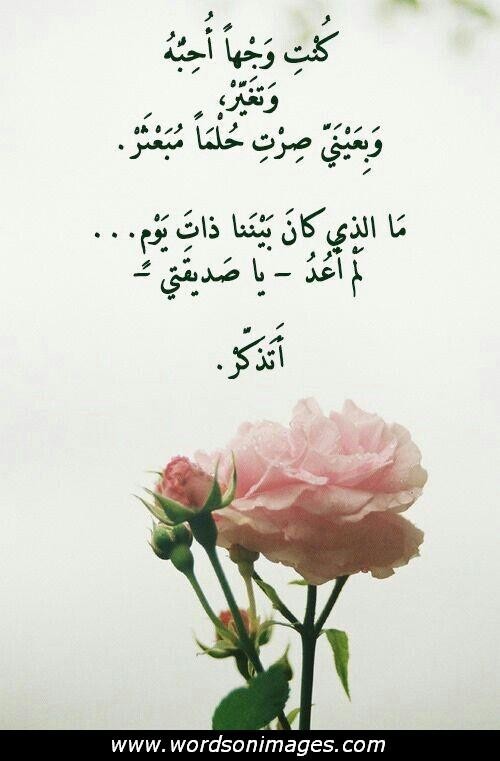 كُنْتِ وَجْهاً أُحِبُّهُ
وَتَغَيّرْ،
وَبِعَيْنَيّ صِرْتِ حُلْمَاً مُبَعْثَرْ.
مَا الذِي كانَ بَيْنَنا ذاتَ يَوْمٍ...
لَمْ أَعُدُ – يا صَديقَتي –
أَتَذَكّرْ.
www.wordsonimages.com